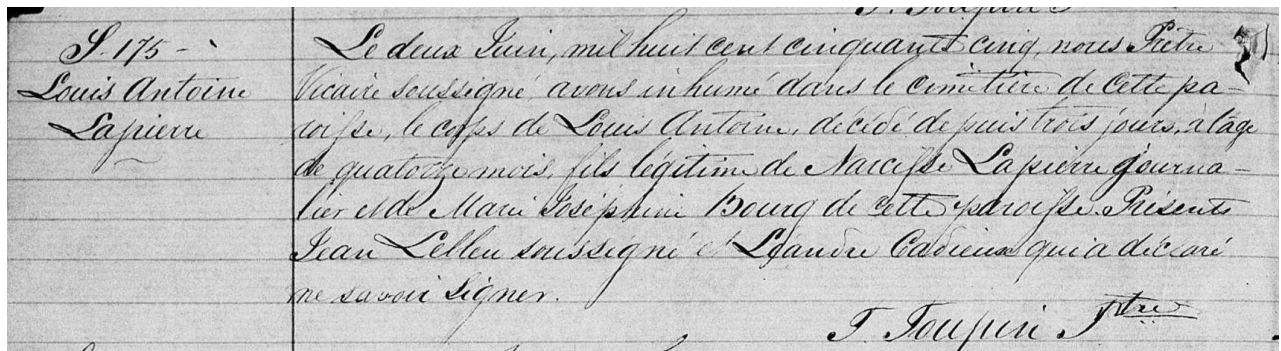 S. 175 -
Louis Antoine
Lapierre
Le deux Juin, mil huit cent cinquante cinq, nous Prêtre
Vicaire soussigné avons inhumé dans le cimetière de cette pa-
roisse, le corps de Louis Antoine, décédé depuis trois jours, à l'age
de quatorze mois, fils légitime de Narcisse Lapierre journa-
lier et de Marie Joséphine Bourg de cette paroisse. Présents
Jean Lelleu soussigné et Léandre Cadieux qui a déclaré
ne savoir signer.
T. Toupin Ptre